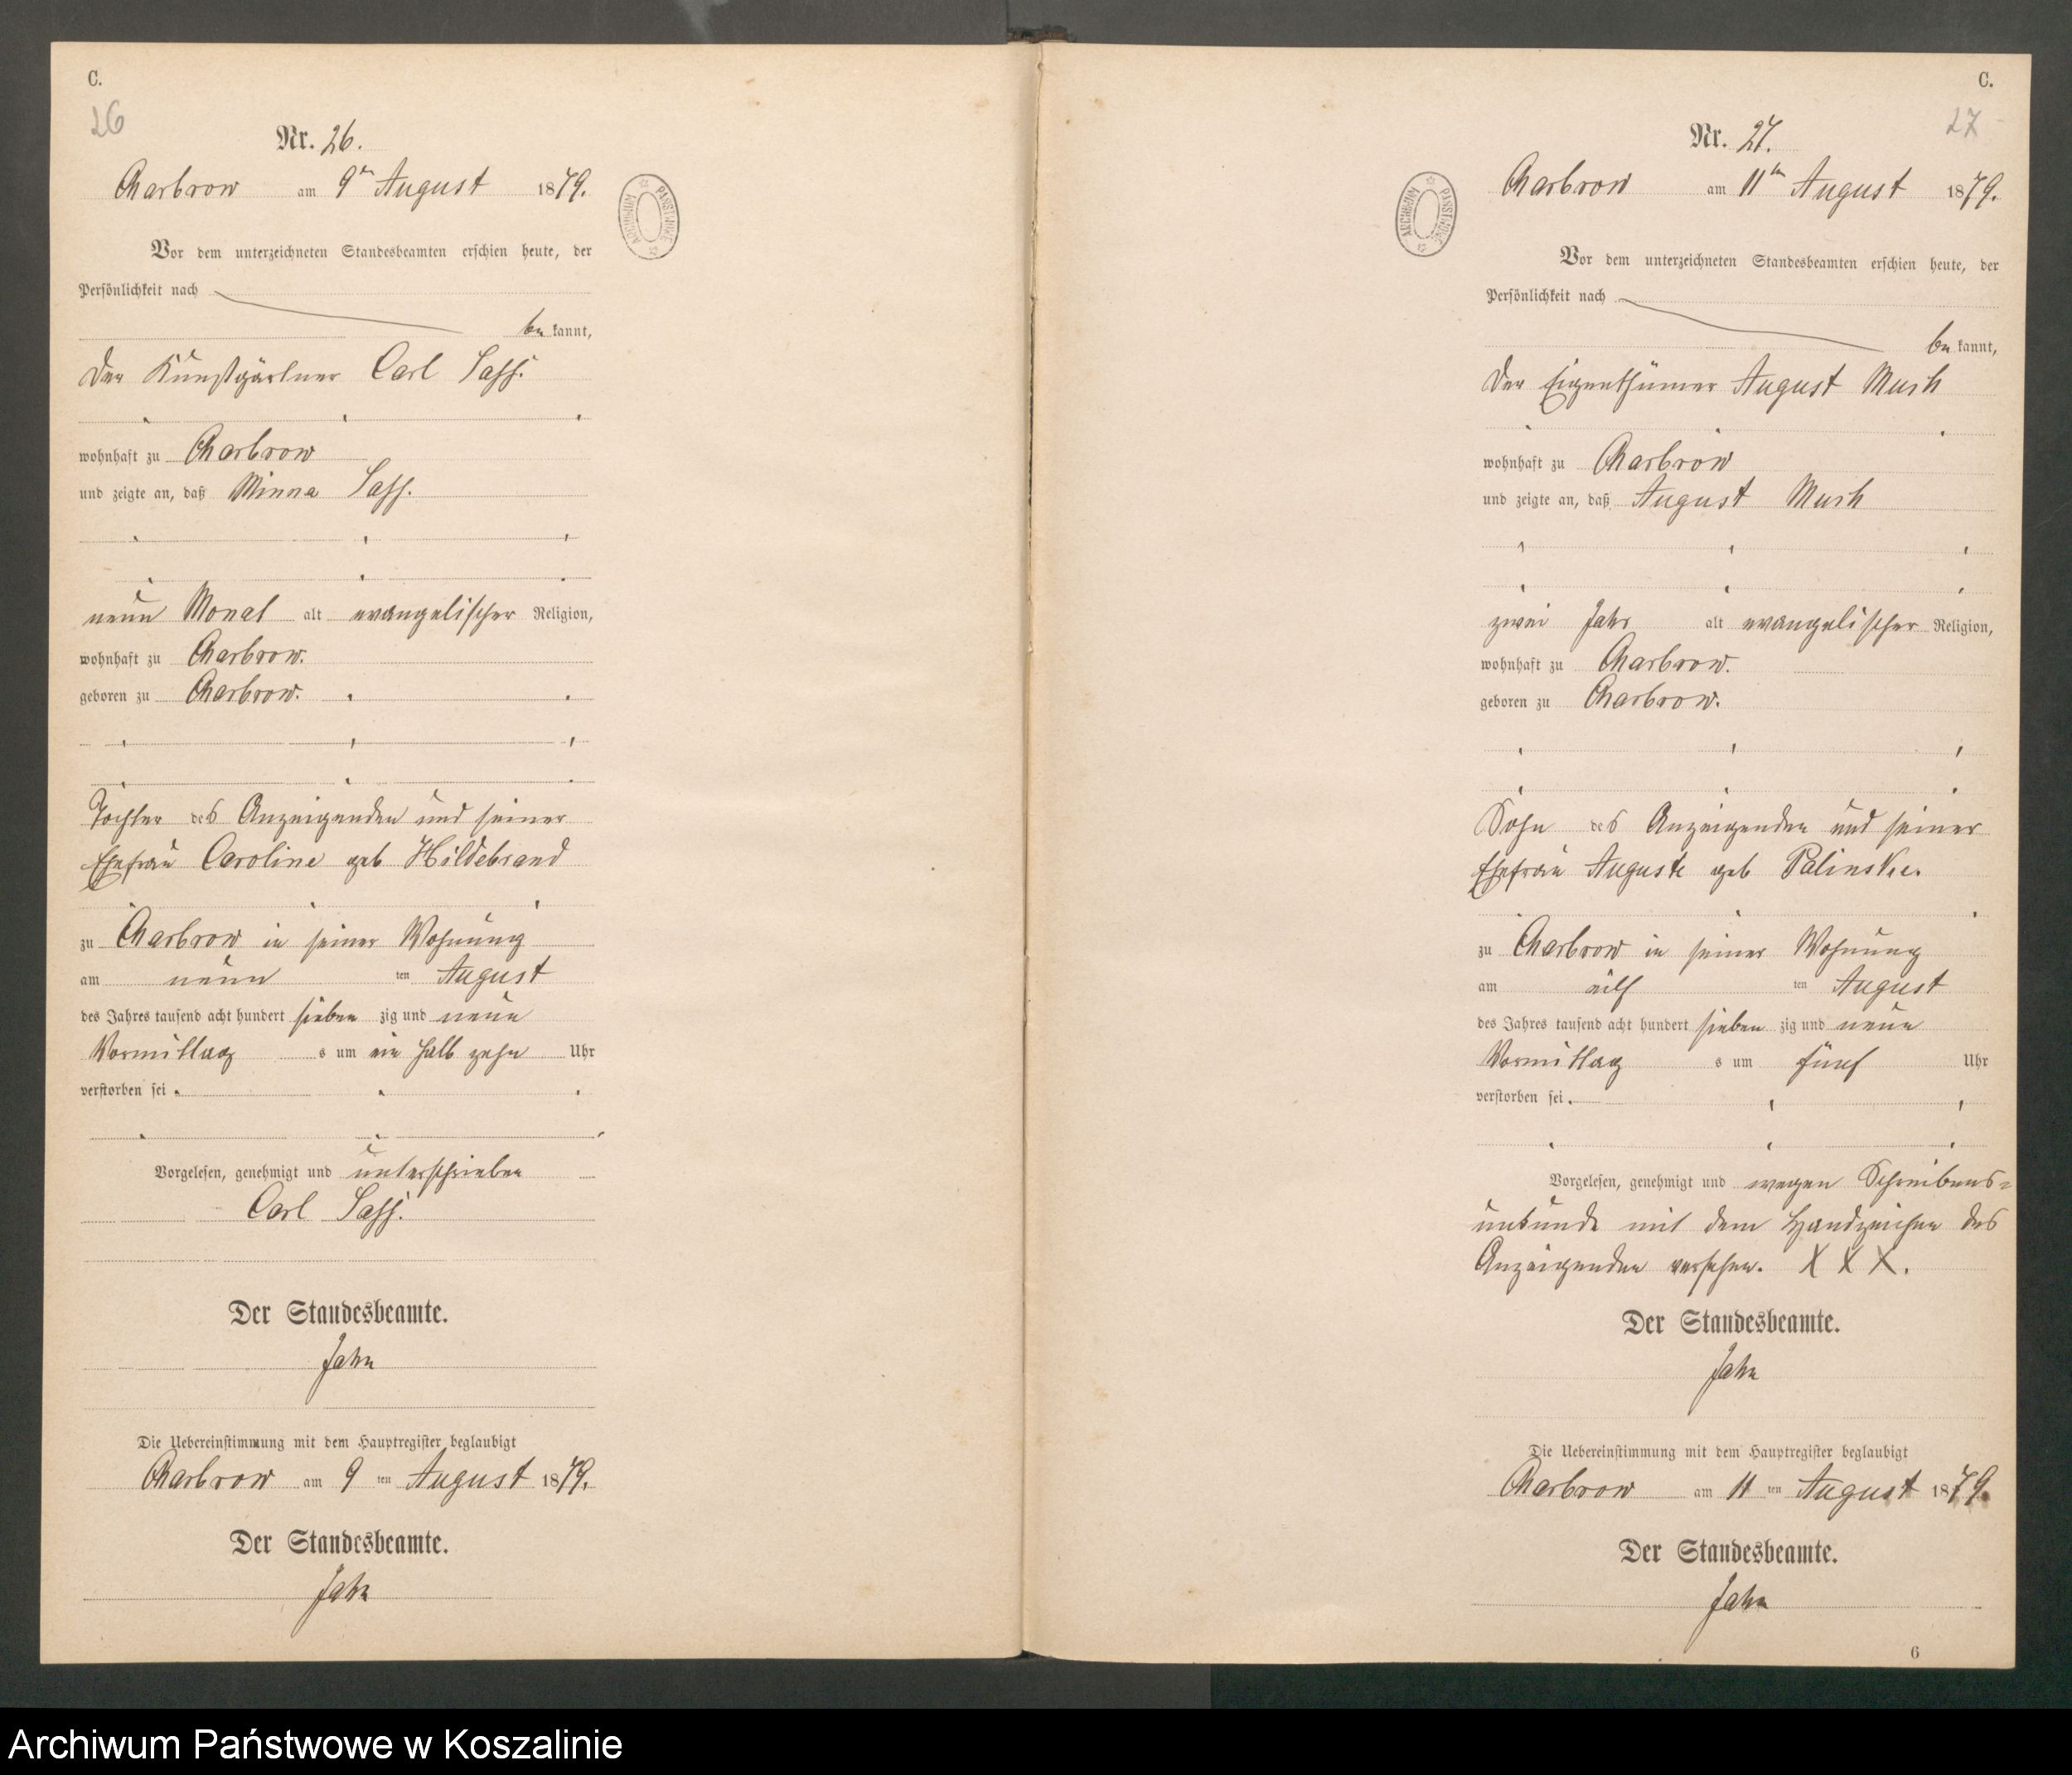 C.
26
Nr. 26.
Charbrow am 9ten August 1879.
ARCHIWUM PAŃSTWOWE
Vor dem unterzeichneten Standesbeamten erschien heute, der
Persönlichkeit nach
be kannt,
der Kunstgärtner Carl Sass.
wohnhaft zu Charbrow
und zeigte an, daß Minna Sass.
neun Monat alt evangelischer Religion,
wohnhaft zu Charbrow.
geboren zu Charbrow.
Tochter des Anzeigenden und seiner
Ehefrau Caroline geb Hildebrand
zu Charbrow in seiner Wohnung
am neun ten August
des Jahres tausend acht hundert sieben zig und neun
Vormittag s um ein halb zehn Uhr
verstorben sei
Vorgelesen, genehmigt und unterschrieben
Carl Sass.
Der Standesbeamte.
Jahn
Die Uebereinstimmung mit dem Hauptregister beglaubigt
Charbrow am 9 ten August 1879.
Der Standesbeamte.
Jahn
C.
27
Nr. 27.
Charbrow am 11ten August 1879.
ARCHIWUM PAŃSTWOWE
Vor dem unterzeichneten Standesbeamten erschien heute, der
Persönlichkeit nach
be kannt,
der Eigenthümer August
wohnhaft zu Charbrow
und zeigte an, daß August
zwei Jahr alt evangelischer Religion,
wohnhaft zu Charbrow.
geboren zu Charbrow.
Sohn des Anzeigenden und seiner
Ehefrau Auguste geb Palinske.
zu Charbrow in seiner Wohnung
am eilf ten August
des Jahres tausend acht hundert sieben zig und neun
Vormittag s um fünf Uhr
verstorben sei.
Vorgelesen, genehmigt und wegen Schreibens-
unkunde mit dem Handzeichen des
Anzeigenden versehen. X X X.
Der Standesbeamte.
Jahn
Die Uebereinstimmung mit dem Hauptregister beglaubigt
Charbrow am 11 ten August 1879.
Der Standesbeamte.
Jahn
6
Archiwum Państwowe w Koszalinie